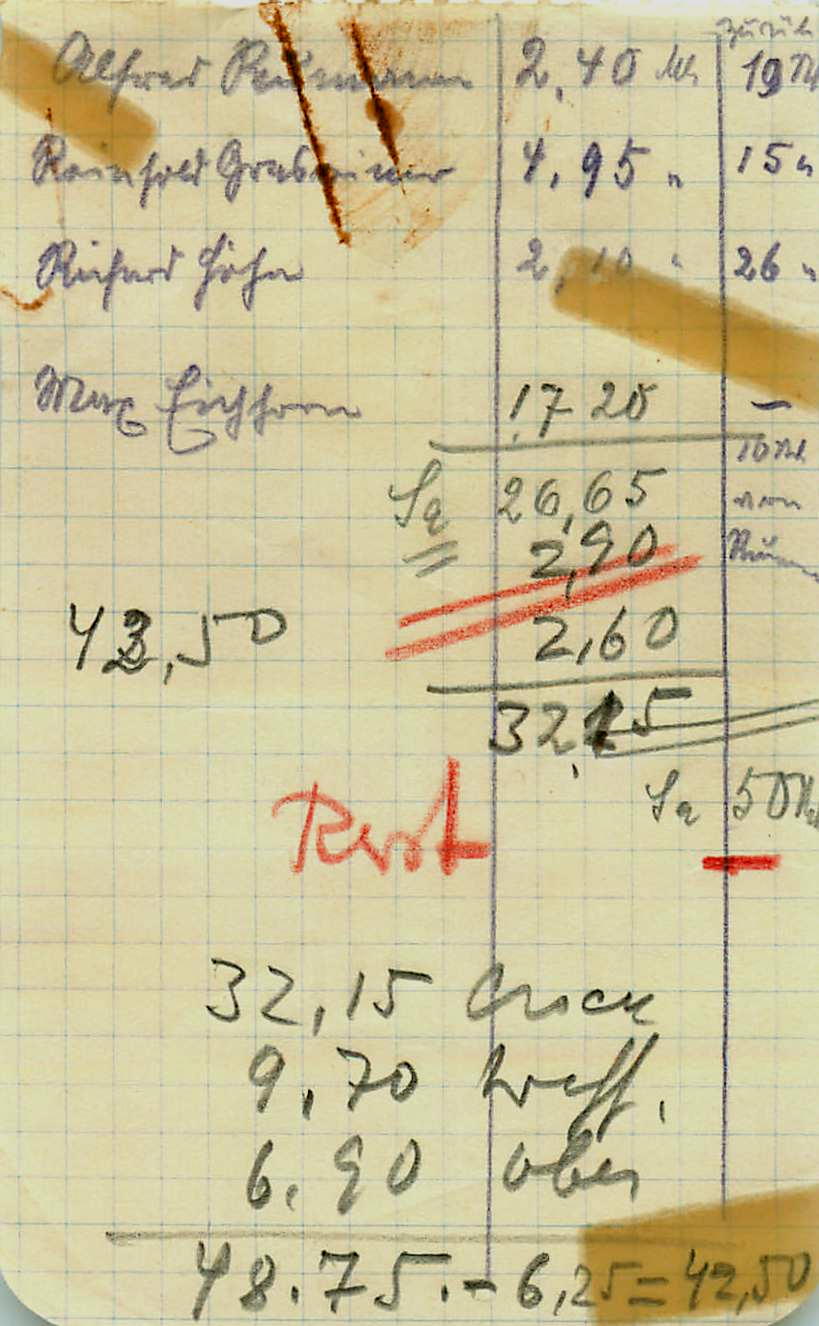 zurück
Alfred 2,40 Mk 19 M
Reinhold 4,95 " 15 "
Richard Höhn 2,10 " 26 "
Max Eichhorn 17 20 –
10 Mk
Sa 26,65 von
2,90
43,50 2,60
32,15
Sa 50 M
Rest
32,15
9,70
6.90 ober
48.75.- 6,25 = 42,50